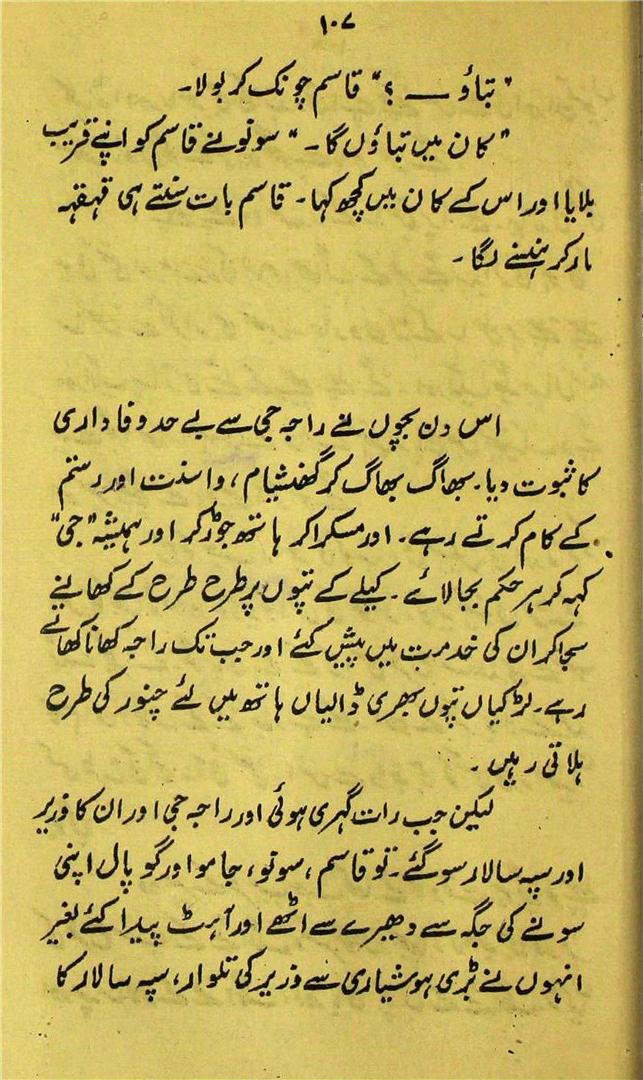 ۱۰۷
"بتاؤ — ؟" قاسم چونک کر بولا۔
"کان میں بتاؤں گا۔" سونو نے قاسم کو اپنے قریب
بلایا اور اس کے کان میں کچھ کہا۔ قاسم بات سنتے ہی قہقہہ
مار کر ہنسنے لگا۔
اس دن بچوں نے راجہ جی سے بے حد وفاداری
کا ثبوت دیا۔ بھاگ بھاگ کر گھنشیام، واسنت اور رستم
کے کام کرتے رہے۔ اور مسکرا کر ہاتھ جوڑ کر اور ہمیشہ "جی"
کہہ کر ہر حکم بجا لائے۔ کیلے کے پتوں پر طرح طرح کے کھانے
سجا کر ان کی خدمت میں پیش کئے اور جب تک راجہ کھانا کھاتے
رہے۔ لڑکیاں پتوں بھری ڈالیاں ہاتھ میں لئے چنور کی طرح
ہلاتی رہیں۔
لیکن جب رات گہری ہوئی اور راجہ جی اور ان کا وزیر
اور سپہ سالار سو گئے۔ تو قاسم، سونو، جامو اور گوپال اپنی
سونے کی جگہ سے دھیرے سے اٹھے اور آہٹ پیدا کئے بغیر
انہوں نے بڑی ہوشیاری سے وزیر کی تلوار، سپہ سالار کا